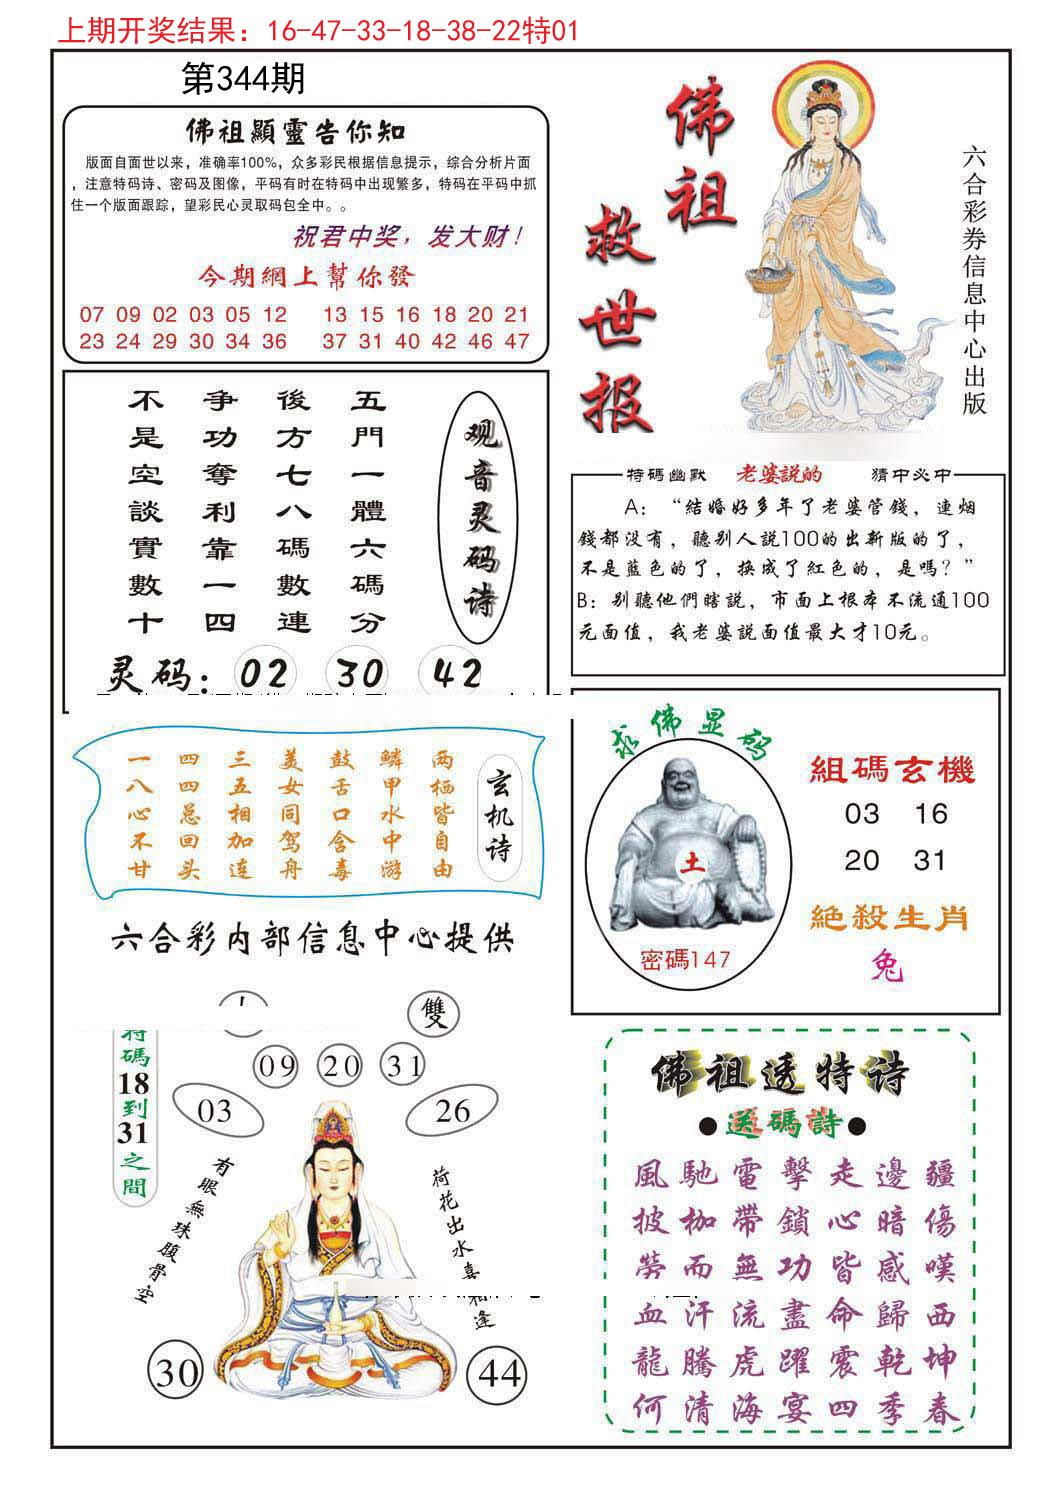 上期开奖结果：16-47-33-18-38-22特01
第344期
佛祖顯靈告你知
版面自面世以来，准确率100%，众多彩民根据信息提示，综合分析片面
，注意特码诗、密码及图像，平码有时在特码中出现繁多，特码在平码中抓
住一个版面跟踪，望彩民心灵取码包全中。。
祝君中奖，发大财！
今期網上幫你發
07 09 02 03 05 12 13 15 16 18 20 21
23 24 29 30 34 36 37 31 40 42 46 47
佛祖
救世报
六合彩券信息中心出版
观音灵码诗
五門一體六碼分
後方七八碼數連
爭功奪利靠一四
不是空談實數十
灵码：02 30 42
特碼幽默 老婆説的 猜中必中
A：“結婚好多年了老婆管錢，連烟
錢都没有，聽别人説100的出新版的了，
不是藍色的了，换成了紅色的，是嗎？”
B：别聽他們瞎説，市面上根本不流通100
元面值，我老婆説面值最大才10元。
玄机诗
两栖皆自由
鳞甲水中游
鼓舌口含毒
美女同驾舟
三五相加连
四四总回头
一八心不甘
六合彩内部信息中心提供
求佛显码
土
密碼147
組碼玄機
03 16
20 31
絕殺生肖
兔
雙
09 20 31
03 26
特碼18到31之間
有眼無珠腹骨空
荷花出水喜相逢
30 44
佛祖透特诗
●送碼詩●
風馳電擊走邊疆
披枷帶鎖心暗傷
勞而無功皆感嘆
血汗流盡命歸西
龍騰虎躍震乾坤
何清海宴四季春